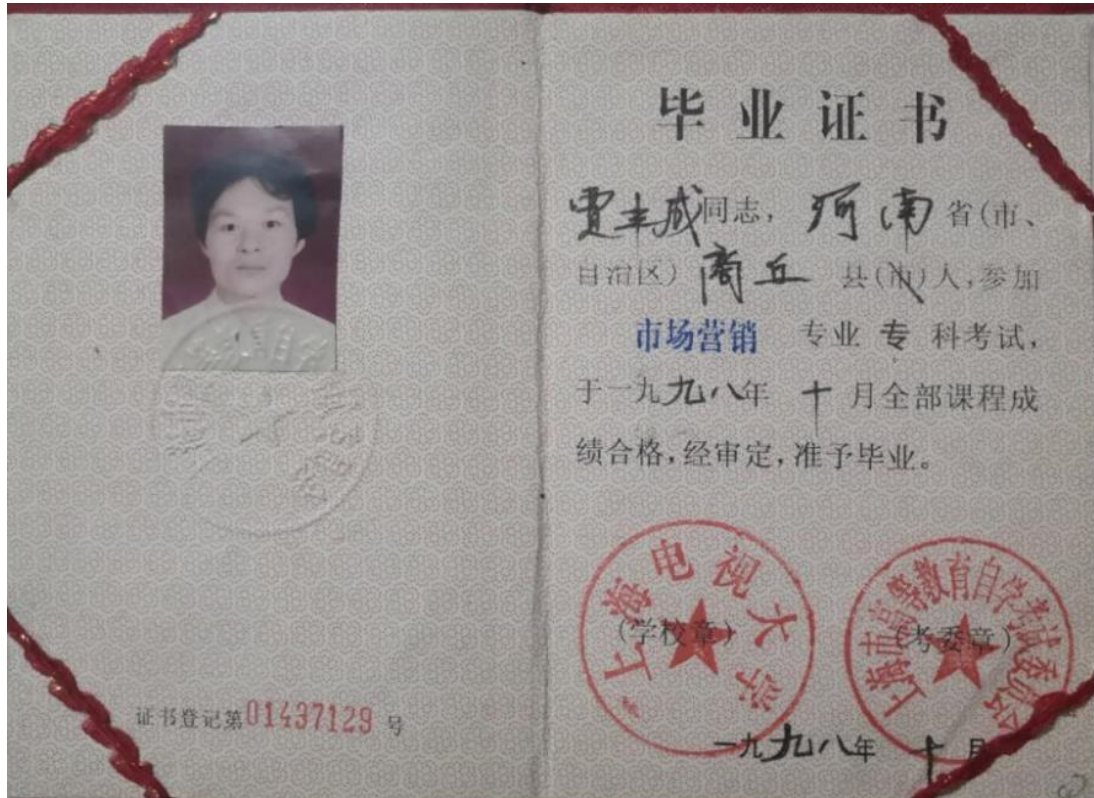 毕业证书
贾丰成同志，河南省(市、
自治区)商丘县(市)人，参加
市场营销 专业 专 科考试，
于一九九八年 十 月全部课程成
绩合格，经审定，准予毕业。
上海电视大学
(学校章)
上海市高等教育自学考试委员会
(考委章)
一九九八年 十 月
证书登记第01437129号